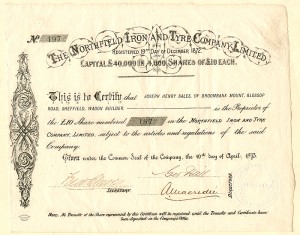 No 197
The Northfield Iron and Tyre Company, Limited
Registered 19th Day of December 1872
Capital £40,000 in 4,000 Shares of £10 each.
This is to Certify that Joseph Henry Sales, of Broombank Mount, Glossop
Road, Sheffield, Wagon Builder, is the Proprietor of
the £10 Share numbered 197 in the Northfield Iron and Tyre
Company, Limited, subject to the articles and regulations of the said
Company:
Given under the Common Seal of the Company, the 10th day of April, 1873.
Secretary
Directors
Note, No Transfer of the Share represented by this Certificate will be registered until the Transfer and Certificate have
been deposited at the Company's Office.